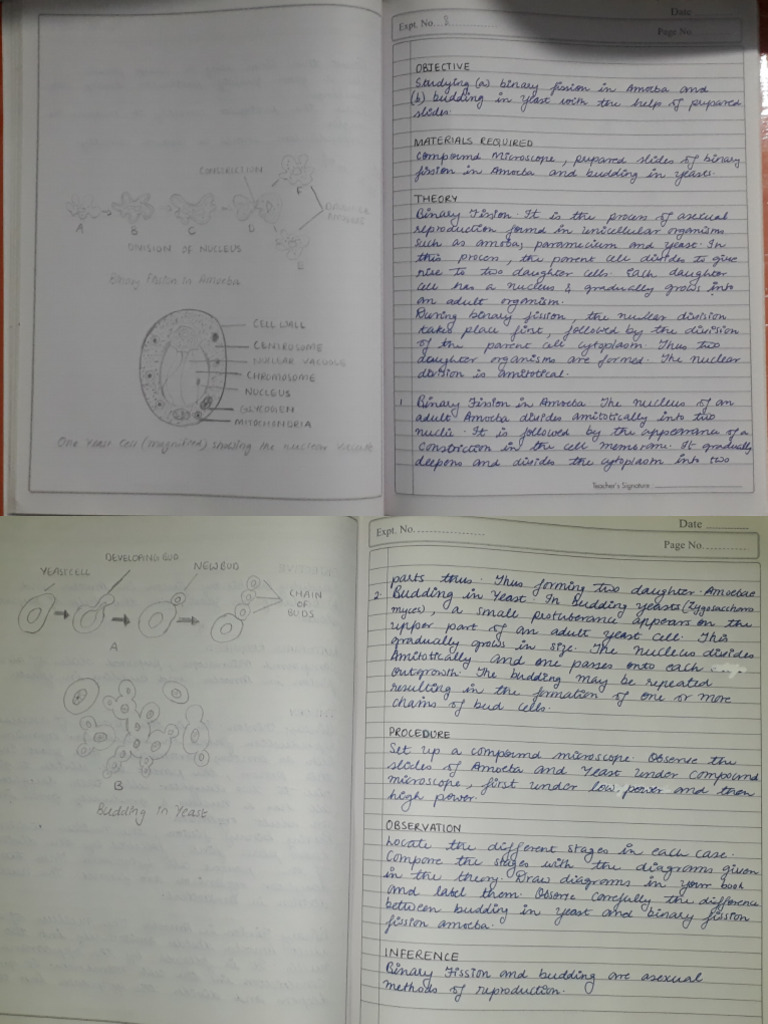 CONSTRICTION
A
B
C
D
E
E
DAUGHTER
DIVISION OF NUCLEUS
Binary Fission in Amoeba
CELL WALL
CENTROSOME
NUCLEAR VACUOLE
CHROMOSOME
NUCLEUS
GLYCOGEN
MITOCHONDRIA
One Yeast Cell (magnified) showing the nuclear vacuole
Date
Expt. No. 8
Page No.
OBJECTIVE
Studying (a) binary fission in Amoeba and
(b) budding in yeast with the help of prepared
slides.
MATERIALS REQUIRED
Compound Microscope, prepared slides of binary
fission in Amoeba and budding in yeasts.
THEORY
Binary Fission. It is the process of asexual
reproduction formd in unicellular organisms
such as amoeba, paramecium and yeast. In
this process, the parent cell divides to give
rise to two daughter cells. Each daughter
cell has a nucleus & gradually grows into
an adult organism.
During binary fission, the nuclear division
takes place first, followed by the division
of the parent cell cytoplasm. Thus two
daughter organisms are formed. The nuclear
division is amitotical.
1. Binary Fission in Amoeba The nucleus of an
adult Amoeba divides amitotically into two
nuclei. It is followed by the appearance of a
constriction in the cell memorane. It gradually
deepens and divides the cytoplasm into two
Teacher's Signature
YEAST CELL
DEVELOPING BUD
NEW BUD
CHAIN
OF
BUDS
A
B
Budding in Yeast
Expt. No.
Date
Page No.
parts thus. Thus forming two daughter Amoebae
2. Budding in Yeast. In Budding yeasts (Zygosaccharo
myces), a small protuberance appears on the
upper part of an adult yeast cell. This
gradually grows in size. The nucleus divides
Amitotically and one passes onto each
outgrowth. The budding may be repeated
resulting in the formation of one or more
chains of bud cells.
PROCEDURE
Set up a compound microscope. Observe the
slides of Amoeba and Yeast under compound
microscope, first under low power and then
high power.
OBSERVATION
Locate the different stages in each case.
Compare the stages with the diagrams given
in the theory. Draw diagrams in your book
and label them. Observe carefully the difference
between budding in yeast and binary fission
fission amoeba.
INFERENCE
Binary Fission and budding are asexual
methods of reproduction.